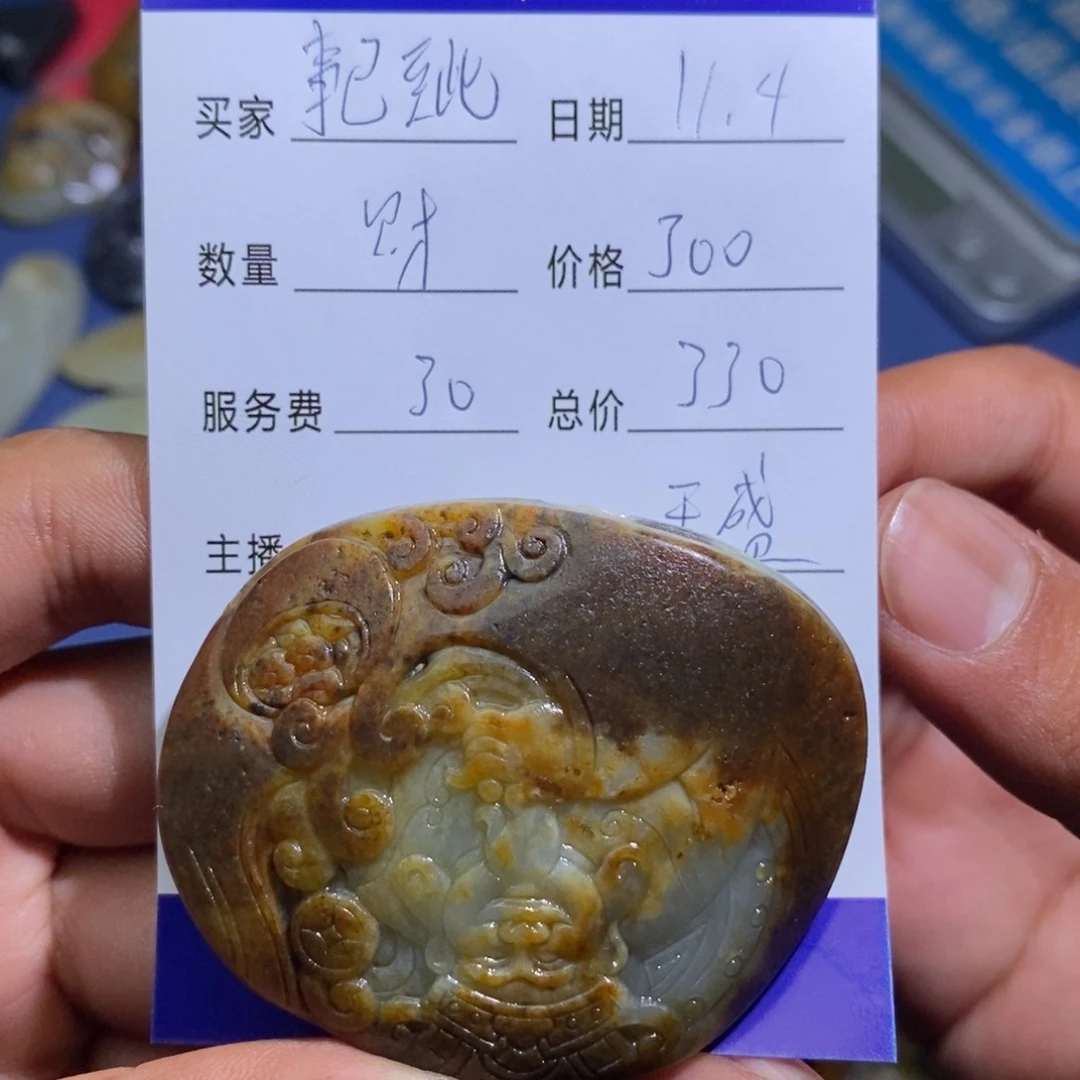 买家 日期 11.4
数量 财 价格 300
服务费 30 总价 330
主播